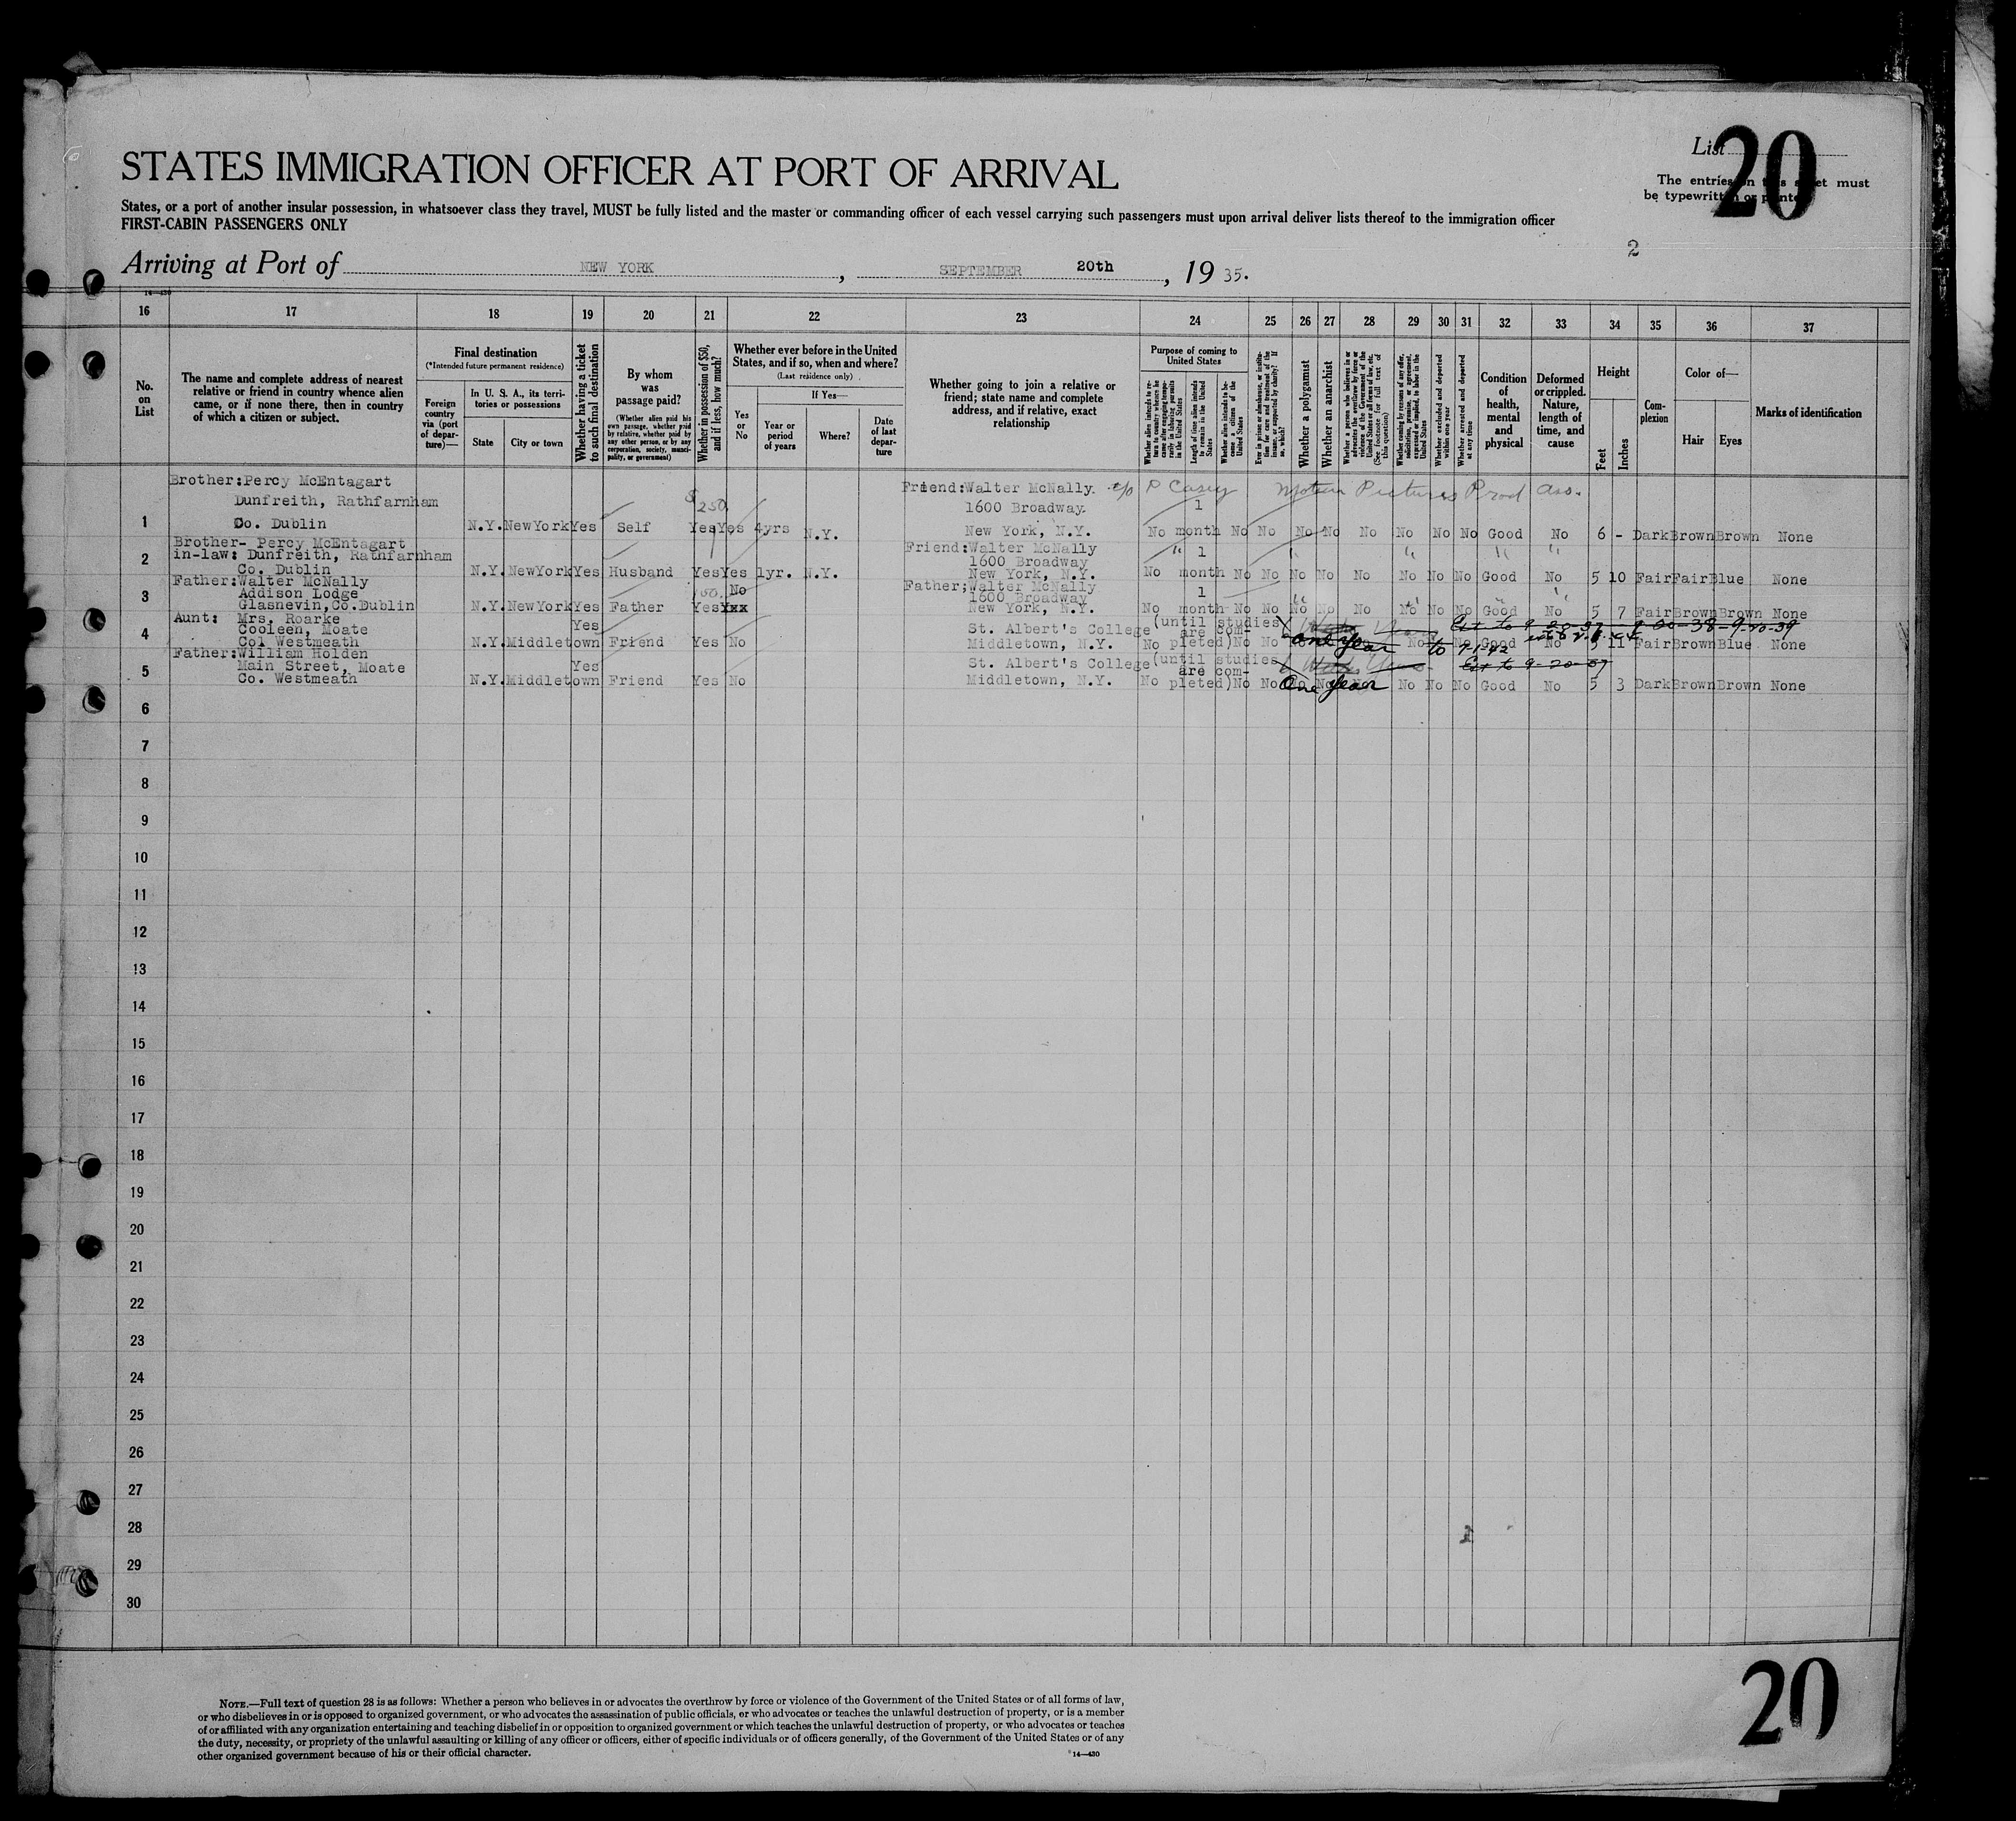 List 20
STATES IMMIGRATION OFFICER AT PORT OF ARRIVAL
The entries on this sheet must
be typewritten or printed
States, or a port of another insular possession, in whatsoever class they travel, MUST be fully listed and the master or commanding officer of each vessel carrying such passengers must upon arrival deliver lists thereof to the immigration officer
FIRST-CABIN PASSENGERS ONLY
2
Arriving at Port of NEW YORK, SEPTEMBER 20th, 19 35.
14-430
16 17 18 19 20 21 22 23 24 25 26 27 28 29 30 31 32 33 34 35 36 37
No. on List
The name and complete address of nearest relative or friend in country whence alien came, or if none there, then in country of which a citizen or subject.
Final destination
(*Intended future permanent residence)
Foreign country via (port of departure)—
In U. S. A., its territories or possessions
State
City or town
Whether having a ticket to such final destination
By whom was passage paid?
(Whether alien paid his own passage, whether paid by relative, whether paid by any other person, or by any corporation, society, municipality, or government)
Whether in possession of $50, and if less, how much?
Whether ever before in the United States, and if so, when and where?
(Last residence only)
Yes or No
If Yes—
Year or period of years
Where?
Date of last departure
Whether going to join a relative or friend; state name and complete address, and if relative, exact relationship
Purpose of coming to United States
Whether alien intends to return to country whence he came after engaging temporarily in laboring pursuits in the United States
Length of time alien intends to remain in the United States
Whether alien intends to become a citizen of the United States
Ever in prison or almshouse, or institution for care and treatment of the insane, or supported by charity? If so, which?
Whether a polygamist
Whether an anarchist
Whether a person who believes in or advocates the overthrow by force or violence of the Government of the United States or all forms of law, etc. (See footnote for full text of this question)
Whether coming by reasons of any offer, solicitation, promise, or agreement, expressed or implied, to labor in the United States
Whether excluded and deported within one year
Whether arrested and deported at any time
Condition of health, mental and physical
Deformed or crippled. Nature, length of time, and cause
Height
Feet
Inches
Complexion
Color of—
Hair
Eyes
Marks of identification
Brother:Percy McEntagart Friend:Walter McNally. c/o P Casey Motion Pictures Prod Ass.
Dunfreith, Rathfarnham $250. 1600 Broadway. 1
1 Co. Dublin N.Y. NewYork Yes Self Yes Yes 4yrs N.Y. New York, N.Y. No month No No No No No No No No Good No 6 - Dark Brown Brown None
Brother- Percy McEntagart Friend:Walter McNally
2 in-law: Dunfreith, Rathfarnham 1600 Broadway 1
Co. Dublin N.Y. NewYork Yes Husband Yes Yes 1yr. N.Y. New York, N.Y. No month No No No No No No No No Good No 5 10 Fair Fair Blue None
Father:Walter McNally 50. No Father;Walter McNally
3 Addison Lodge 1600 Broadway 1
Glasnevin,Co.Dublin N.Y. NewYork Yes Father Yes Yxx New York, N.Y. No month No No No No No No No No Good No 5 7 Fair Brown Brown None
Aunt: Mrs. Roarke Yes (until studies Ext to 9-20-37 9-20-38-9-20-39
4 Cooleen, Moate St. Albert's College are com- One Year to 7-1-42
Col Westmeath N.Y. Middletown Friend Yes No Middletown, N.Y. No pleted) No No No No No Good No 5 11 Fair Brown Blue None
Father:William Holden (until studies
5 Main Street, Moate Yes St. Albert's College are com- Ext to 9-20-37
Co. Westmeath N.Y. Middletown Friend Yes No Middletown, N.Y. No pleted) No No One Year No No No Good No 5 3 Dark Brown Brown None
6
7
8
9
10
11
12
13
14
15
16
17
18
19
20
21
22
23
24
25
26
27
28
29
30
NOTE.—Full text of question 28 is as follows: Whether a person who believes in or advocates the overthrow by force or violence of the Government of the United States or of all forms of law,
or who disbelieves in or is opposed to organized government, or who advocates the assassination of public officials, or who advocates or teaches the unlawful destruction of property, or is a member
of or affiliated with any organization entertaining and teaching disbelief in or opposition to organized government or which teaches the unlawful destruction of property, or who advocates or teaches
the duty, necessity, or propriety of the unlawful assaulting or killing of any officer or officers, either of specific individuals or of officers generally, of the Government of the United States or of any
other organized government because of his or their official character.
14—430
20